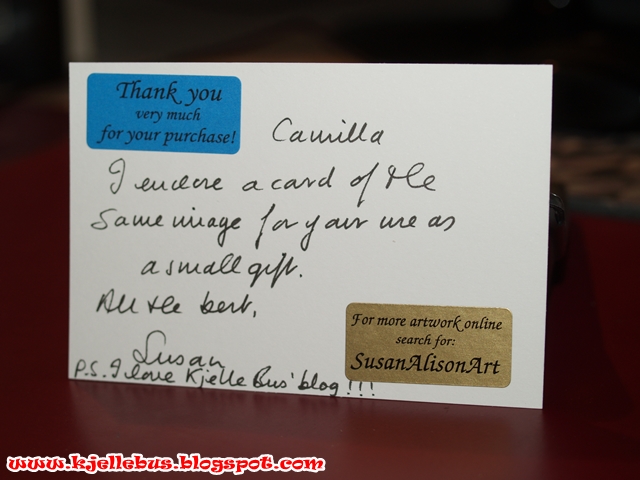 Thank you
very much
for your purchase!
Camilla
I enclose a card of the
same image for your use as
a small gift.
All the best,
Susan
P.S. I love Kjelle Bus' blog!!!
For more artwork online
search for:
SusanAlisonArt
www.kjellebus.blogspot.com